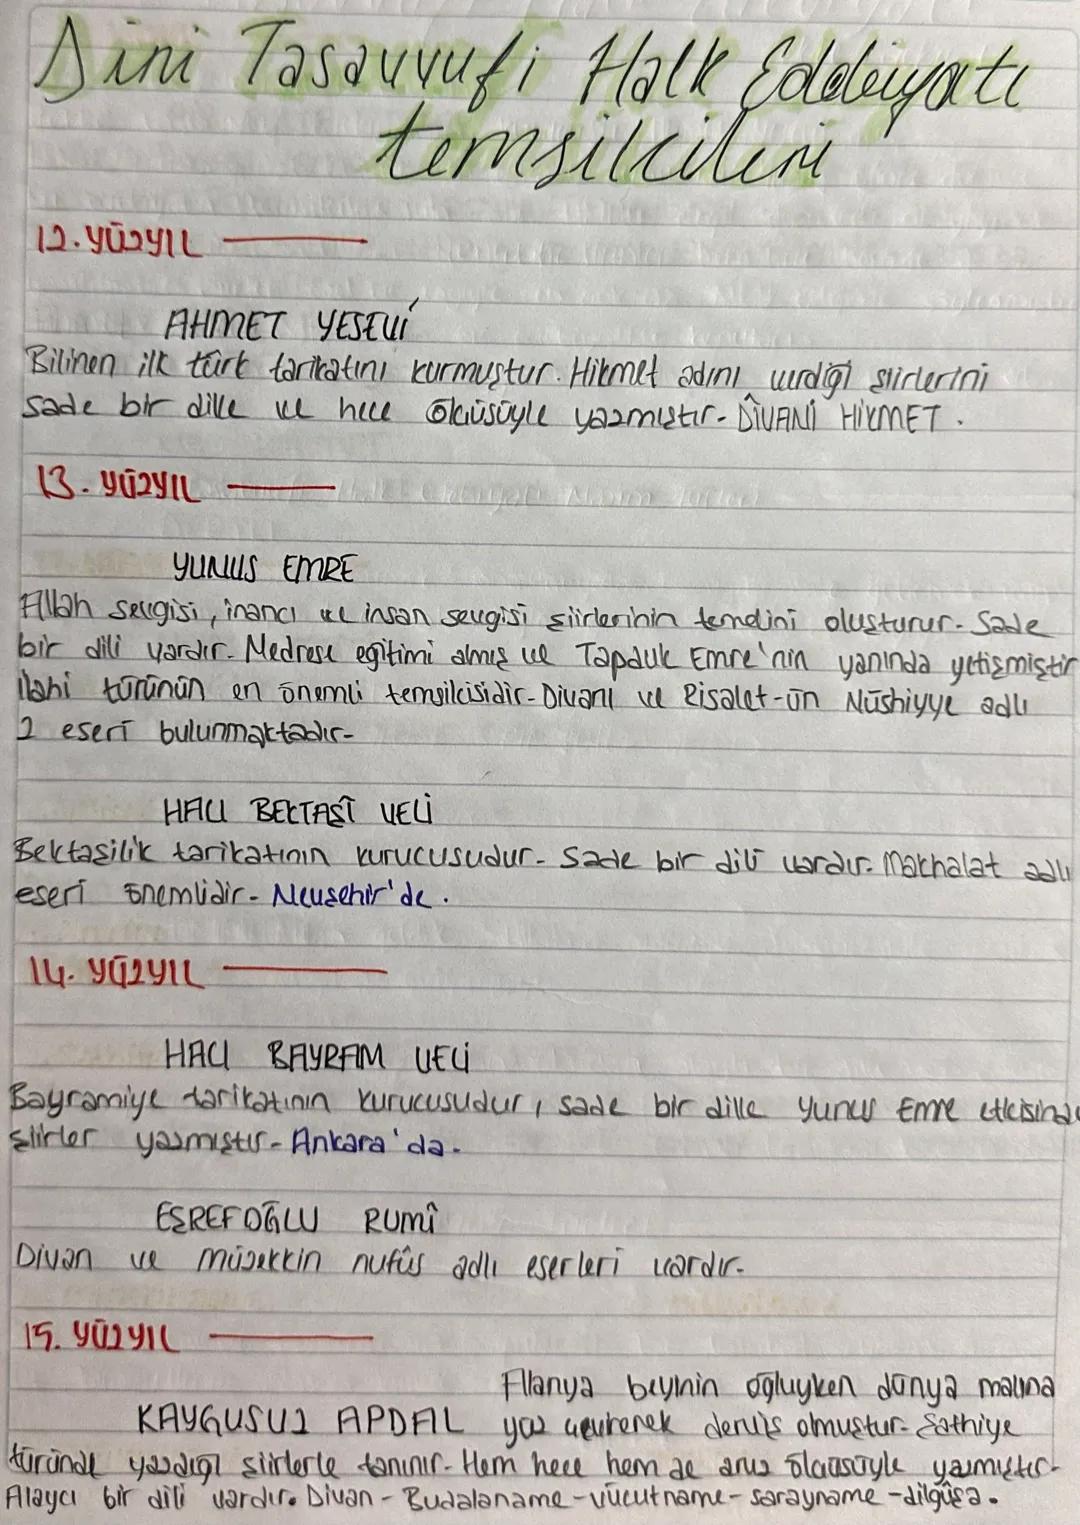 Dini Tasavvufi Halk Edebiyatı
temsilcileri
12. YÜZYIL
AHMET YESEVİ
Bilinen ilk türk tarikatını kurmuştur. Hikmet adını verdiği şiirlerini
sade bir dille ve hece ölçüsüyle yazmıştır- DİVANİ HİKMET.
13. YÜZYIL
YUNUS EMRE
Allah sevgisi, inancı ve insan sevgisi şiirlerinin temelini oluşturur- Sade
bir dili vardır- Medrese eğitimi almış ve Tapduk Emre'nin yanında yetişmiştir
ilahi türünün en önemli temsilcisidir- Divanı ve Risalet-ün Nüshiyye adlı
2 eseri bulunmaktadır-
HACI BEKTAŞİ VELİ
Bektaşilik tarikatının kurucusudur- Sade bir dili vardır. Makhalat adlı
eseri önemlidir- Nevşehir'de.
14. YÜZYIL
HACI BAYRAM VELİ
Bayramiye tarikatının kurucusudur, sade bir dille Yunus Emre etkisinde
şiirler yazmıştır- Ankara'da.
EŞREFOĞLU RUMÎ
Divan ve müzekkin nufûs adlı eserleri vardır-
15. YÜZYIL
Alanya beyinin oğluyken dünya malına
KAYGUSUZ APDAL yüz çevirerek derviş olmuştur- Şathiye
türünde yazdığı şiirlerle tanınır- Hem hece hem de aruz ölçüsüyle yazmıştır-
Alaycı bir dili vardır. Divan - Budalaname - vücutname - sarayname - dilgûşa.